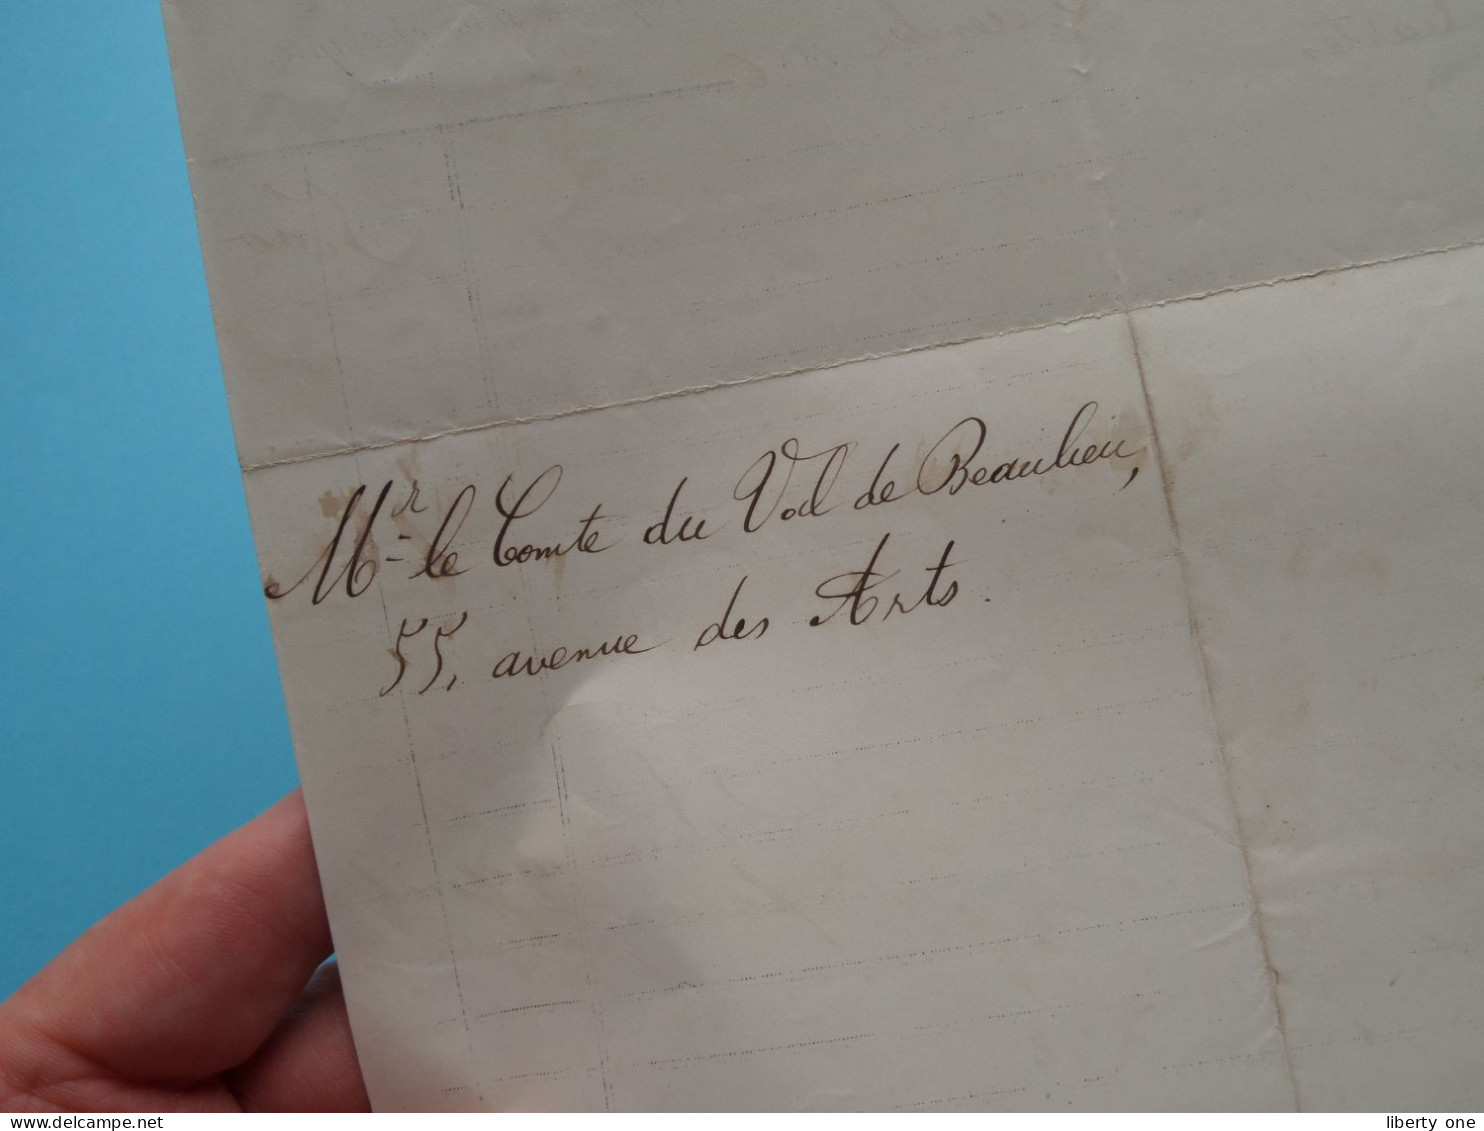 Mr le Comte du Val de Beaulieu,
55, avenue des Arts.
Delcampe.net
liberty one